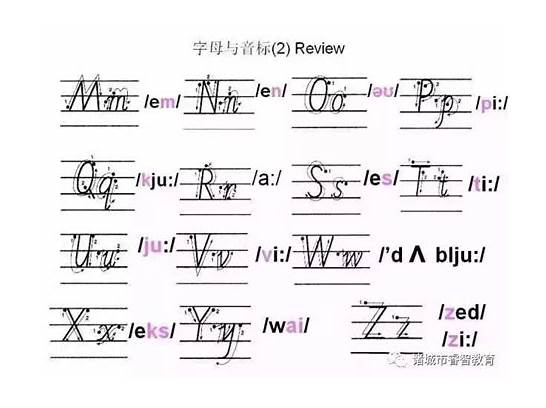 字母与音标(2) Review
Mm /em/ Nn /en/ Oo /əʊ/ Pp /pi:/
Qq /kju:/ Rr /a:/ Ss /es/ Tt /ti:/
Uu /ju:/ Vv /vi:/ Ww /'dʌblju:/
Xx /eks/ Yy /wai/ Zz /zed/
/zi:/
诸城市睿智教育